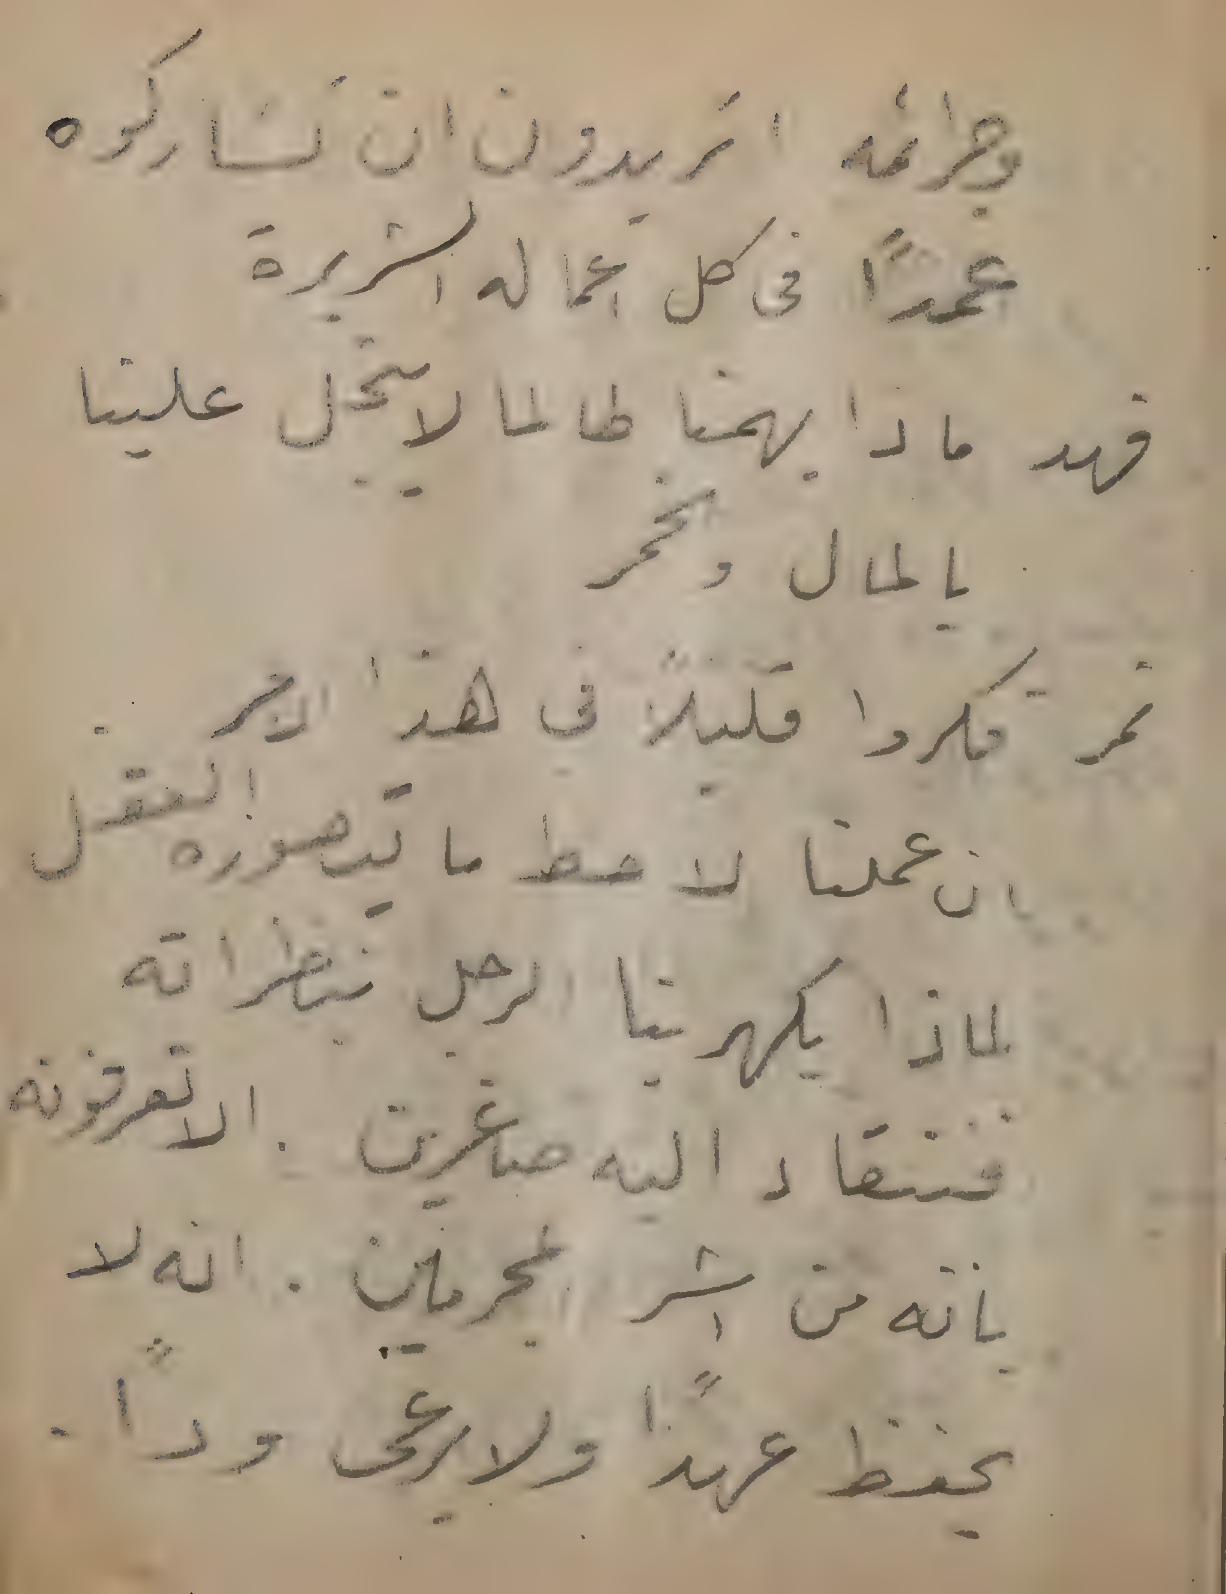 وجرائمه اتريدون ان تشاركوه
عمدًا في كل اعماله الشريرة
فهد ماذا يهمنا طالما لا يبخل علينا
بالمال وخمر
نمر فكروا قليلاً في هذا الامر
ان عملنا لاحط ما يتصوره العقل
لماذا يكهربنا الرجل بنظراته
فننقاد اليه صاغرين . الا تعرفونه
بانه من اشر المجرمين . انه لا
يحفظ عهدًا ولا يرعى ودًا .